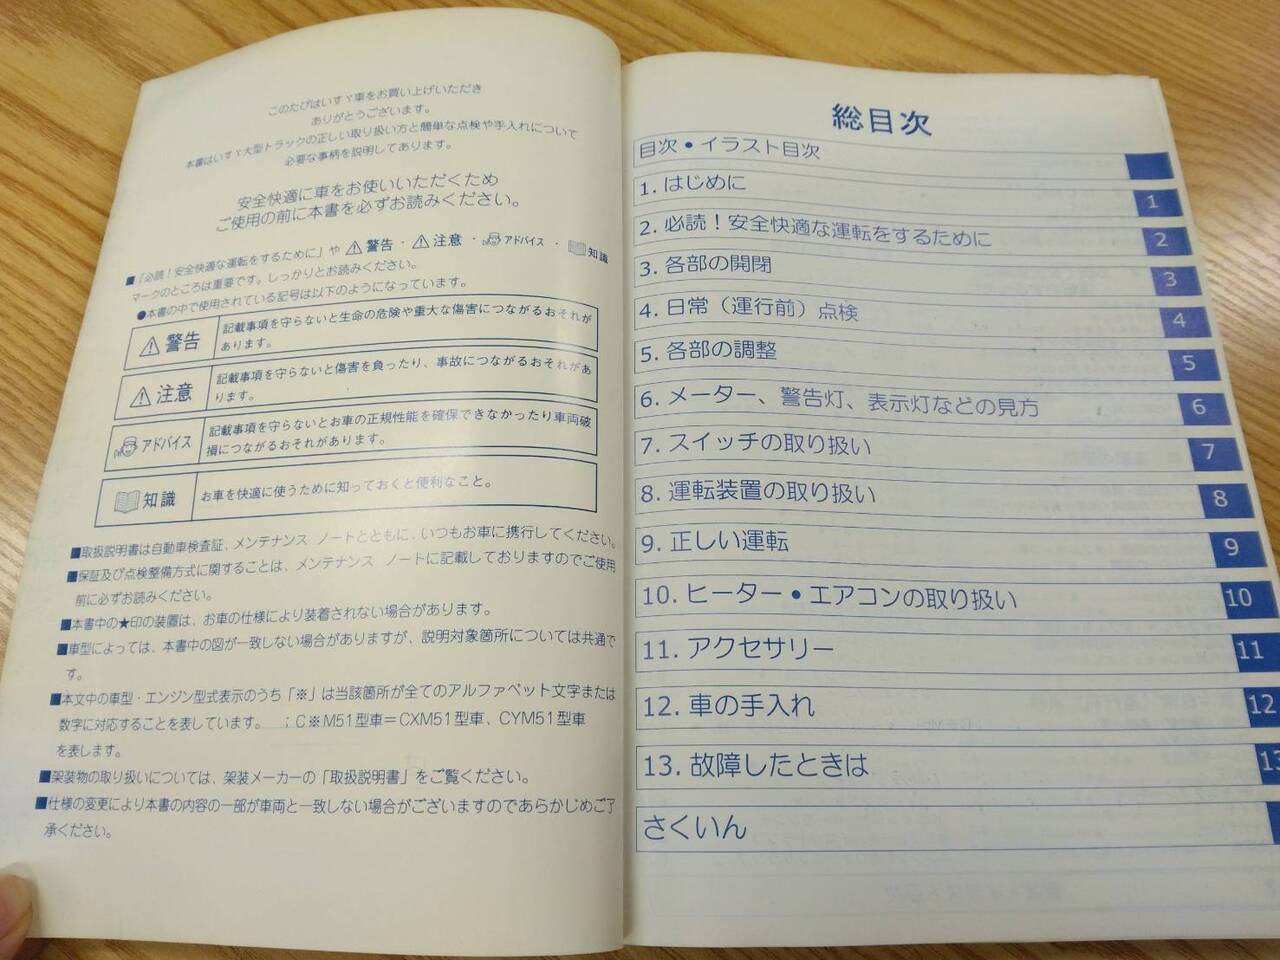 このたびはいすゞ車をお買い上げいただき
ありがとうございます。
本書はいすゞ大型トラックの正しい取り扱い方と簡単な点検や手入れについて
必要な事柄を説明してあります。
安全快適に車をお使いいただくため
ご使用の前に本書を必ずお読みください。
■「必読！安全快適な運転をするために」や⚠警告・⚠注意・アドバイス・知識
マークのところは重要です。しっかりとお読みください。
●本書の中で使用されている記号は以下のようになっています。
⚠警告
記載事項を守らないと生命の危険や重大な傷害につながるおそれが
あります。
⚠注意
記載事項を守らないと傷害を負ったり、事故につながるおそれがあ
ります。
アドバイス
記載事項を守らないとお車の正規性能を確保できなかったり車両破
損につながるおそれがあります。
知識
お車を快適に使うために知っておくと便利なこと。
■取扱説明書は自動車検査証、メンテナンス ノートとともに、いつもお車に携行してください。
■保証及び点検整備方式に関することは、メンテナンス ノートに記載しておりますのでご使用
前に必ずお読みください。
■本書中の★印の装置は、お車の仕様により装着されない場合があります。
■車型によっては、本書中の図が一致しない場合がありますが、説明対象箇所については共通で
す。
■本文中の車型・エンジン型式表示のうち「※」は当該箇所が全てのアルファベット文字または
数字に対応することを表しています。 ；C※M51型車＝CXM51型車、CYM51型車
を表します。
■架装物の取り扱いについては、架装メーカーの「取扱説明書」をご覧ください。
■仕様の変更により本書の内容の一部が車両と一致しない場合がございますのであらかじめご了
承ください。
総目次
目次・イラスト目次
1. はじめに 1
2. 必読！安全快適な運転をするために 2
3. 各部の開閉 3
4. 日常（運行前）点検 4
5. 各部の調整 5
6. メーター、警告灯、表示灯などの見方 6
7. スイッチの取り扱い 7
8. 運転装置の取り扱い 8
9. 正しい運転 9
10. ヒーター・エアコンの取り扱い 10
11. アクセサリー 11
12. 車の手入れ 12
13. 故障したときは 13
さくいん